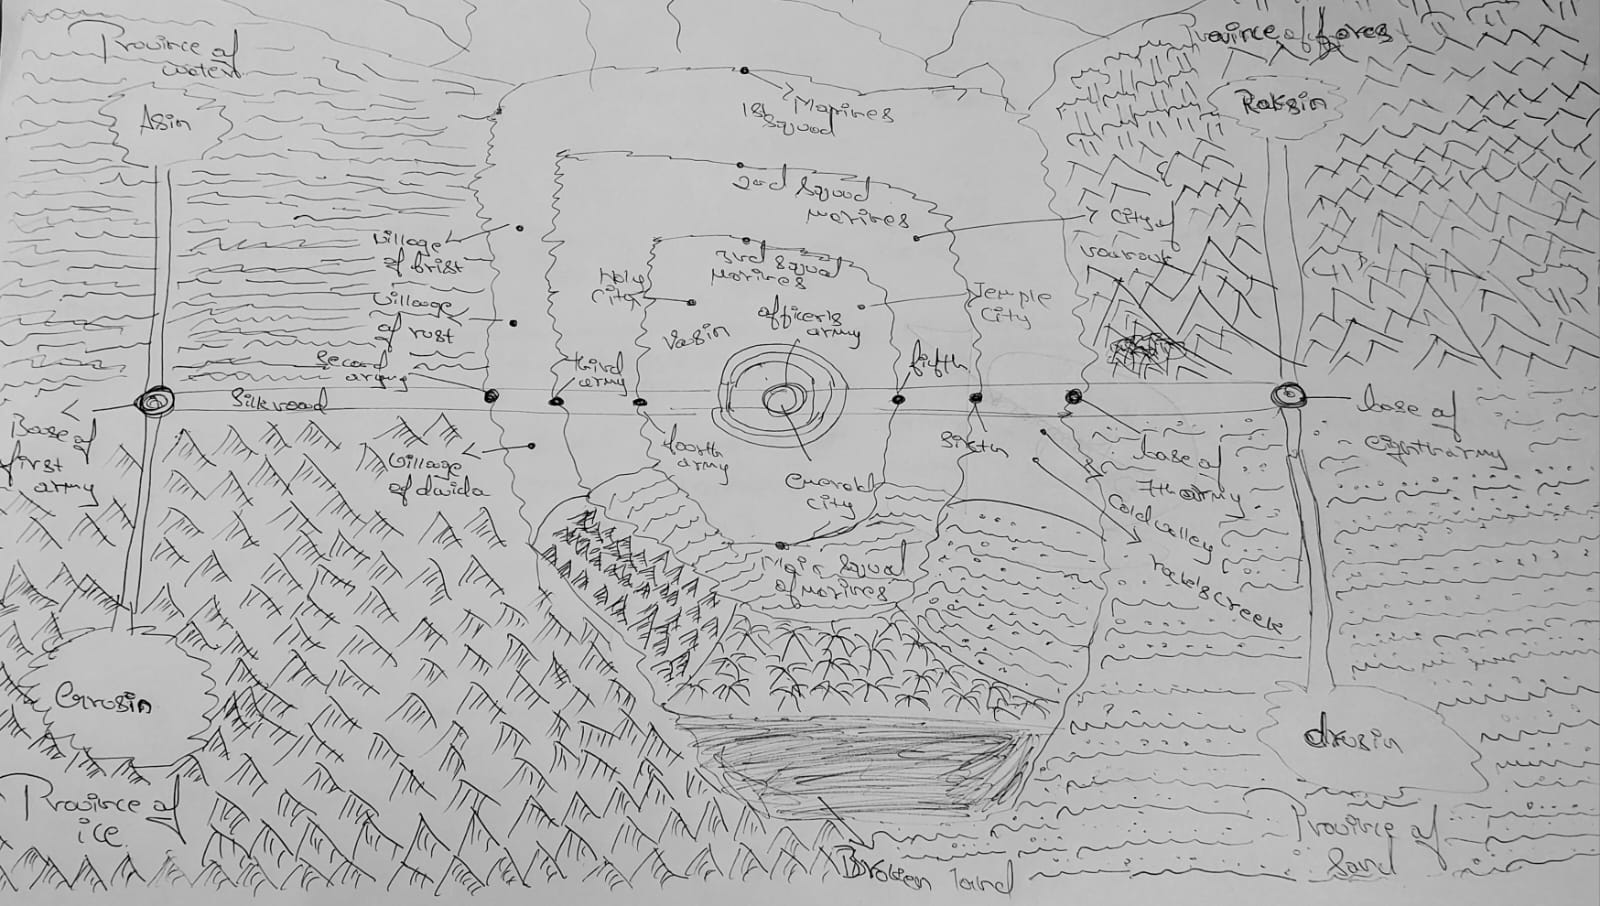 Province of
water
Asin
Marines
1st
Squad
Province of forest
Raksin
2nd Squad
Marines
City of
Village
of brist
3rd Squad
Marines
Holy
City
Temple
City
officers
army
Village
of rust
Vasin
Second
army
third
army
fifth
Silkroad
Base of
first
army
Village
of dwida
fourth
army
Sixth
emerald
city
base of
7th army
base of
eighth army
Cold valley
creek
Main Squad
of marines
drosin
Province of
ice
Province of
Sand
Broken land